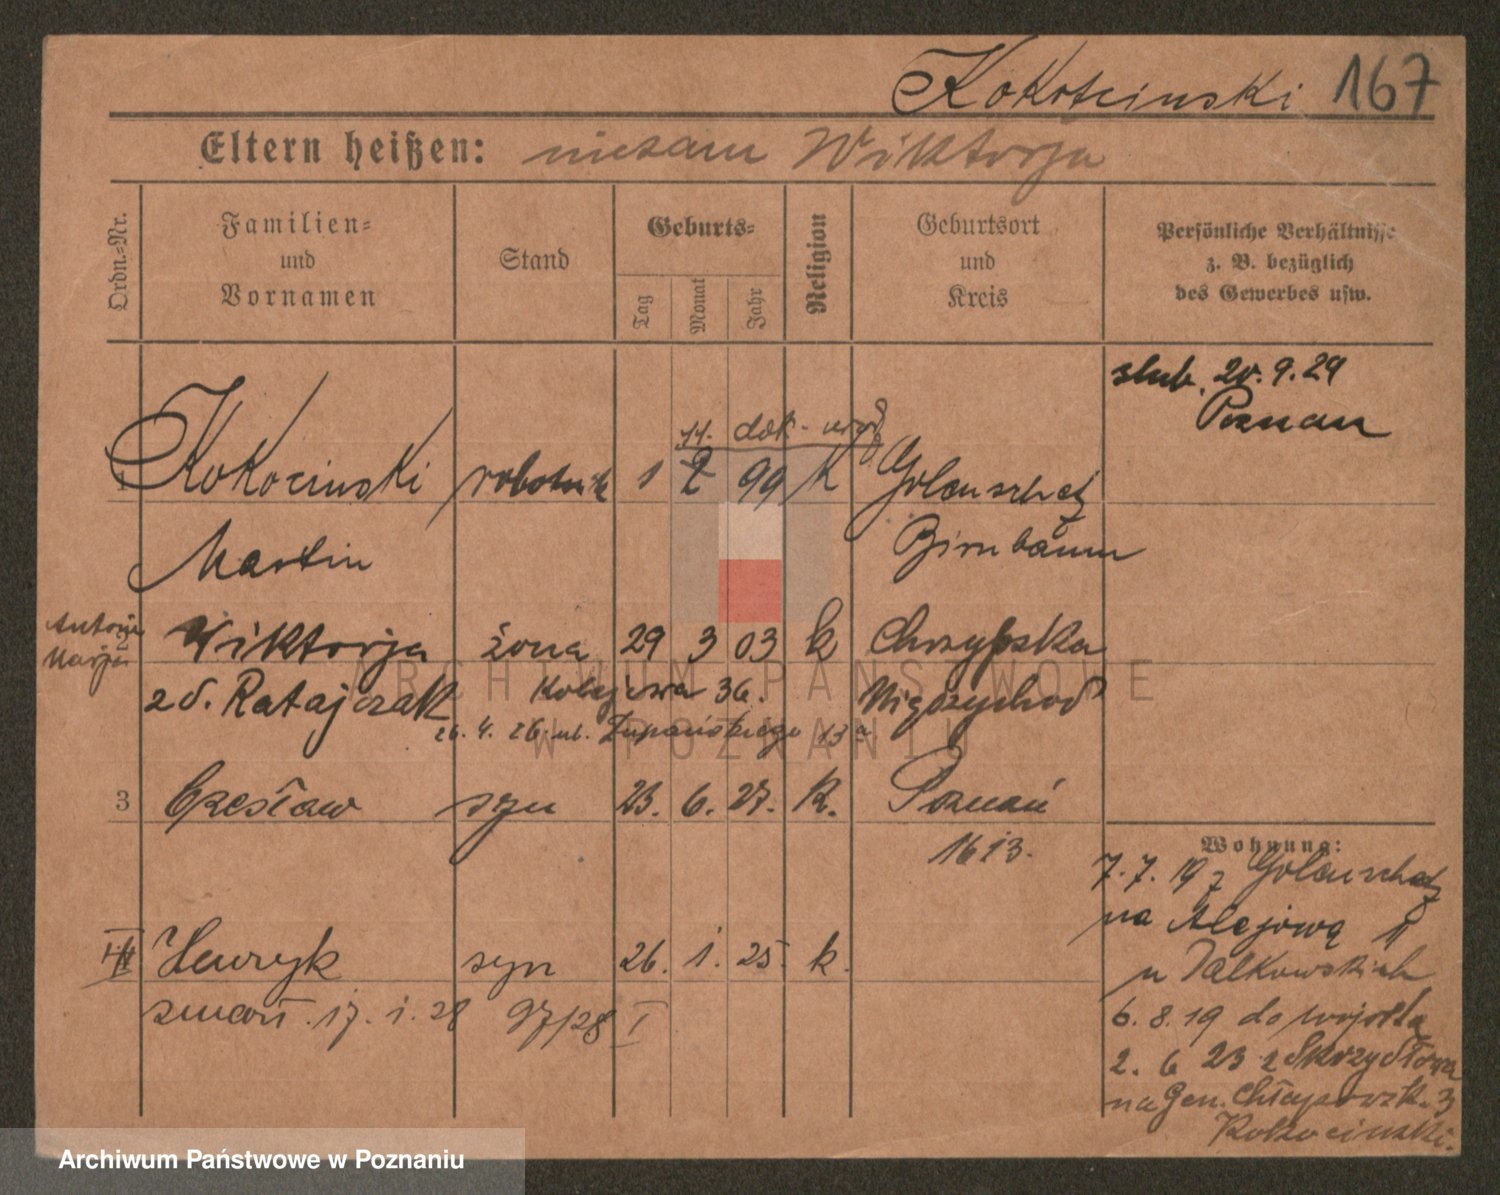 Kokociński 167
Eltern heißen: Wiktorja
Ordn.-Nr.
Familien-
und
Vornamen
Stand
Geburts-
Tag
Monat
Jahr
Religion
Geburtsort
und
Kreis
Persönliche Verhältnisse
z. B. bezüglich
des Gewerbes usw.
ślub. 20. 9. 29
Poznań
11. dok.
1 Kokocinski robotnik 1 2 99 K
Martin Birnbaum
Antonja
Marja
2 Wiktorja żona 29 3 03 k Chrzypska
zd. Ratajczak Kolejowa 36. Międzychod
26. 4. 26. ul. Żupańskiego 13a
3 Czesław syn 23. 6. 27. K. Poznań
1613.
Wohnung:
7. 7. 19 z
na Alejową
u
Henryk syn 26. 1. 25. k.
zmarł. 17. 1. 28 97/28 I
6. 8. 19 do wojska
2. 6 23 z Skrzydłowa
na Gen. Chłapowsk. 3
Kokocinski.
ARCHIWUM PAŃSTWOWE
W POZNANIU
Archiwum Państwowe w Poznaniu